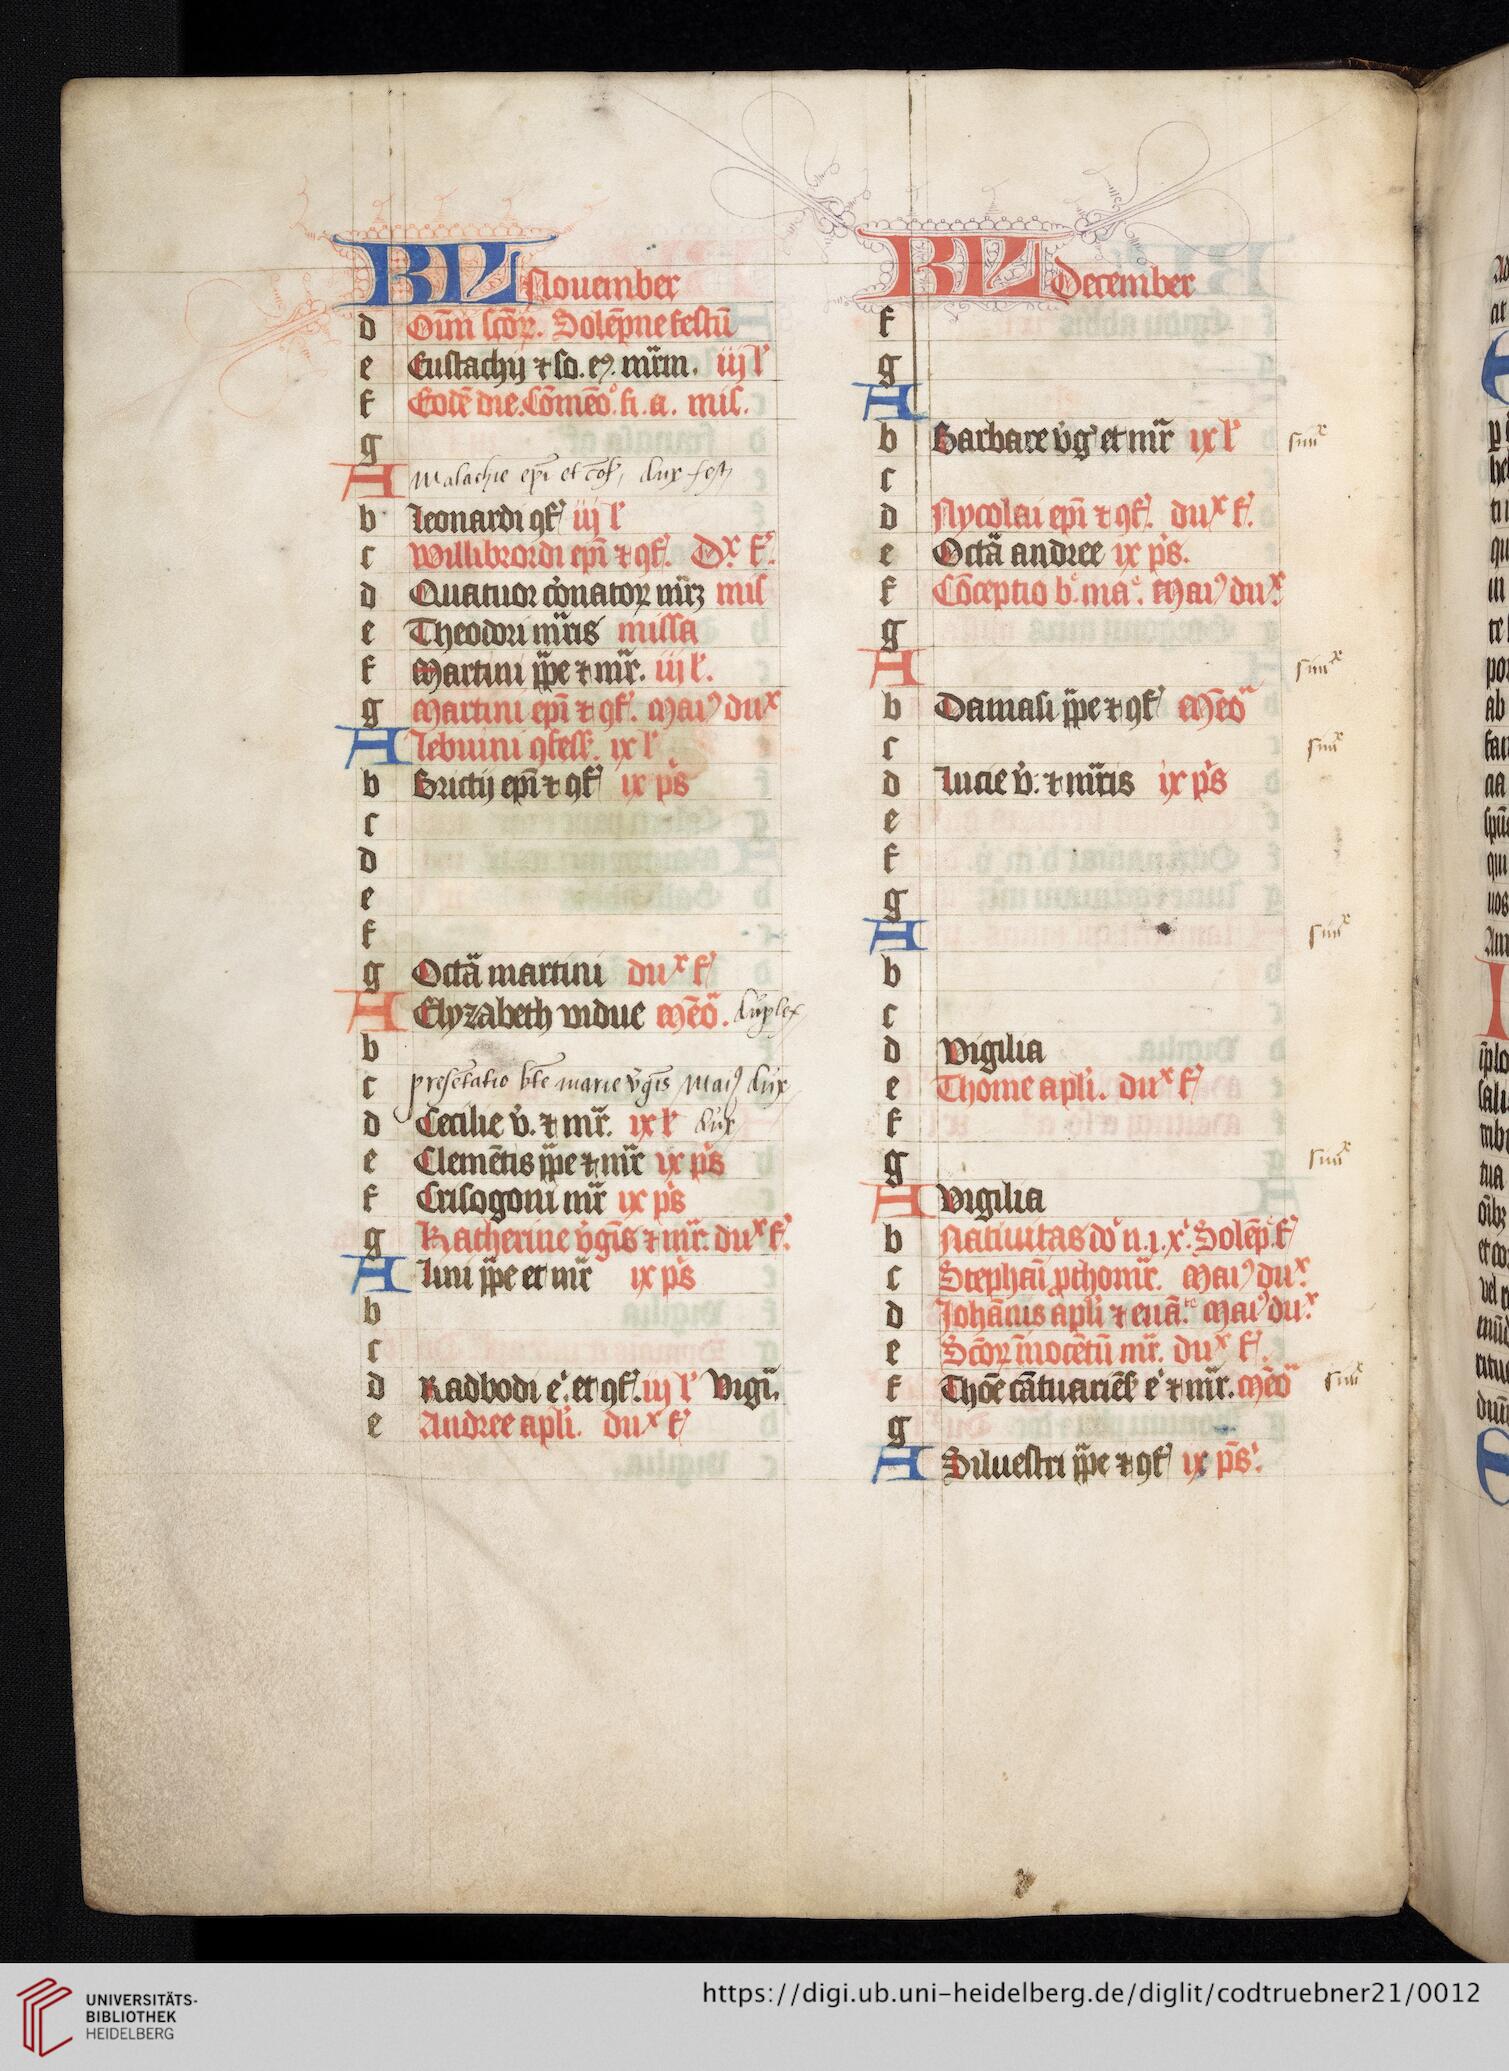 KL November
d Om̄ scōꝝ. Solēpne festū
e Eustachij ⁊ so. eꝰ. mr̄m. iij lˀ
f Eodē die. Cōmēoͦ. fi. a. mis.
g
A Malachie epī et cōf, dux festū
b Leonardi ꝯf iij lˀ
c Willibrordi epī ⁊ ꝯf. Dx f.
d Quatuor cōnatoꝝ mr̄ꝫ mis
e Theodori mr̄is missa
f Martini p̄pe ⁊ mr̄. iij l.
g Martini epī ⁊ ꝯf. Maiꝰ dux
A Lebuini ꝯfess. ix lˀ
b Brictij epī ⁊ ꝯf ix p̄s
c
d
e
f
g Octā martini dux f
A Elyzabeth vidue Mēoͣ. duplex
b
c presētatio bte marie v̓gīs Maiꝰ dux
d Cecilie v̓. ⁊ mr̄. ix lˀ dux
e Clemētis p̄pe ⁊ mr̄ ix p̄s
f Crisogoni mr̄ ix p̄s
g Katherine v̓gīs ⁊ mr̄. dux f.
A Lini p̄pe et mr̄ ix p̄s
b
c
d Radbodi e. et ꝯf. iij lˀ Vigiͣ.
e Andree apl̄i. dux f
KL December
f
g
A
b Barbare v̓g et mr̄ ix lˀ
c
d Nycolai epī ⁊ ꝯf. dux f.
e Octā andree ix p̄s.
f Cōceptio b. ma. Maiꝰ dux
g
A
b Damasi p̄pe ⁊ ꝯf Mēoͣ
c
d Lucie v̓. ⁊ mr̄is ix p̄s
e
f
g
A
b
c
d Vigilia
e Thome apl̄i. dux f
f
g
A Vigilia
b Natiuitas do n. i. x. Solēp. f
c Stephāi ꝓthomr̄. Maiꝰ dux
d Johānis apl̄i ⁊ euā. Maiꝰ dux
e Scōꝝ īnocētū mr̄. dux f.
f Thōe cātuariēs e ⁊ mr̄. Mēoͣ
g
A Siluestri p̄pe ⁊ ꝯf ix p̄s.
UNIVERSITÄTS-
BIBLIOTHEK
HEIDELBERG
https://digi.ub.uni-heidelberg.de/diglit/codtruebner21/0012